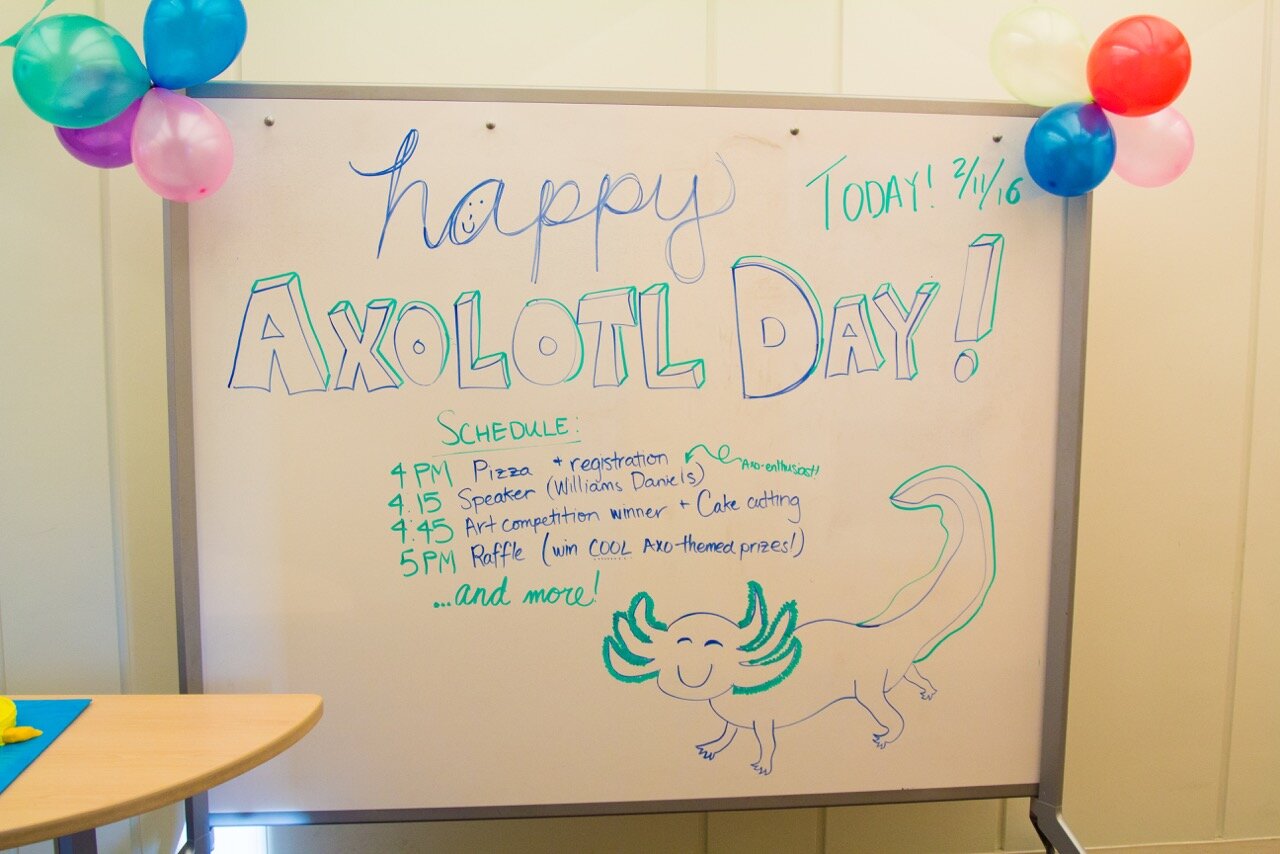 happy
TODAY! 2/11/16
AXOLOTL DAY!
SCHEDULE:
4 PM Pizza + registration
Axo-enthusiast!
4:15 Speaker (Williams Daniels)
4:45 Art competition winner + Cake cutting
5PM Raffle (win COOL Axo-themed prizes!)
...and more!